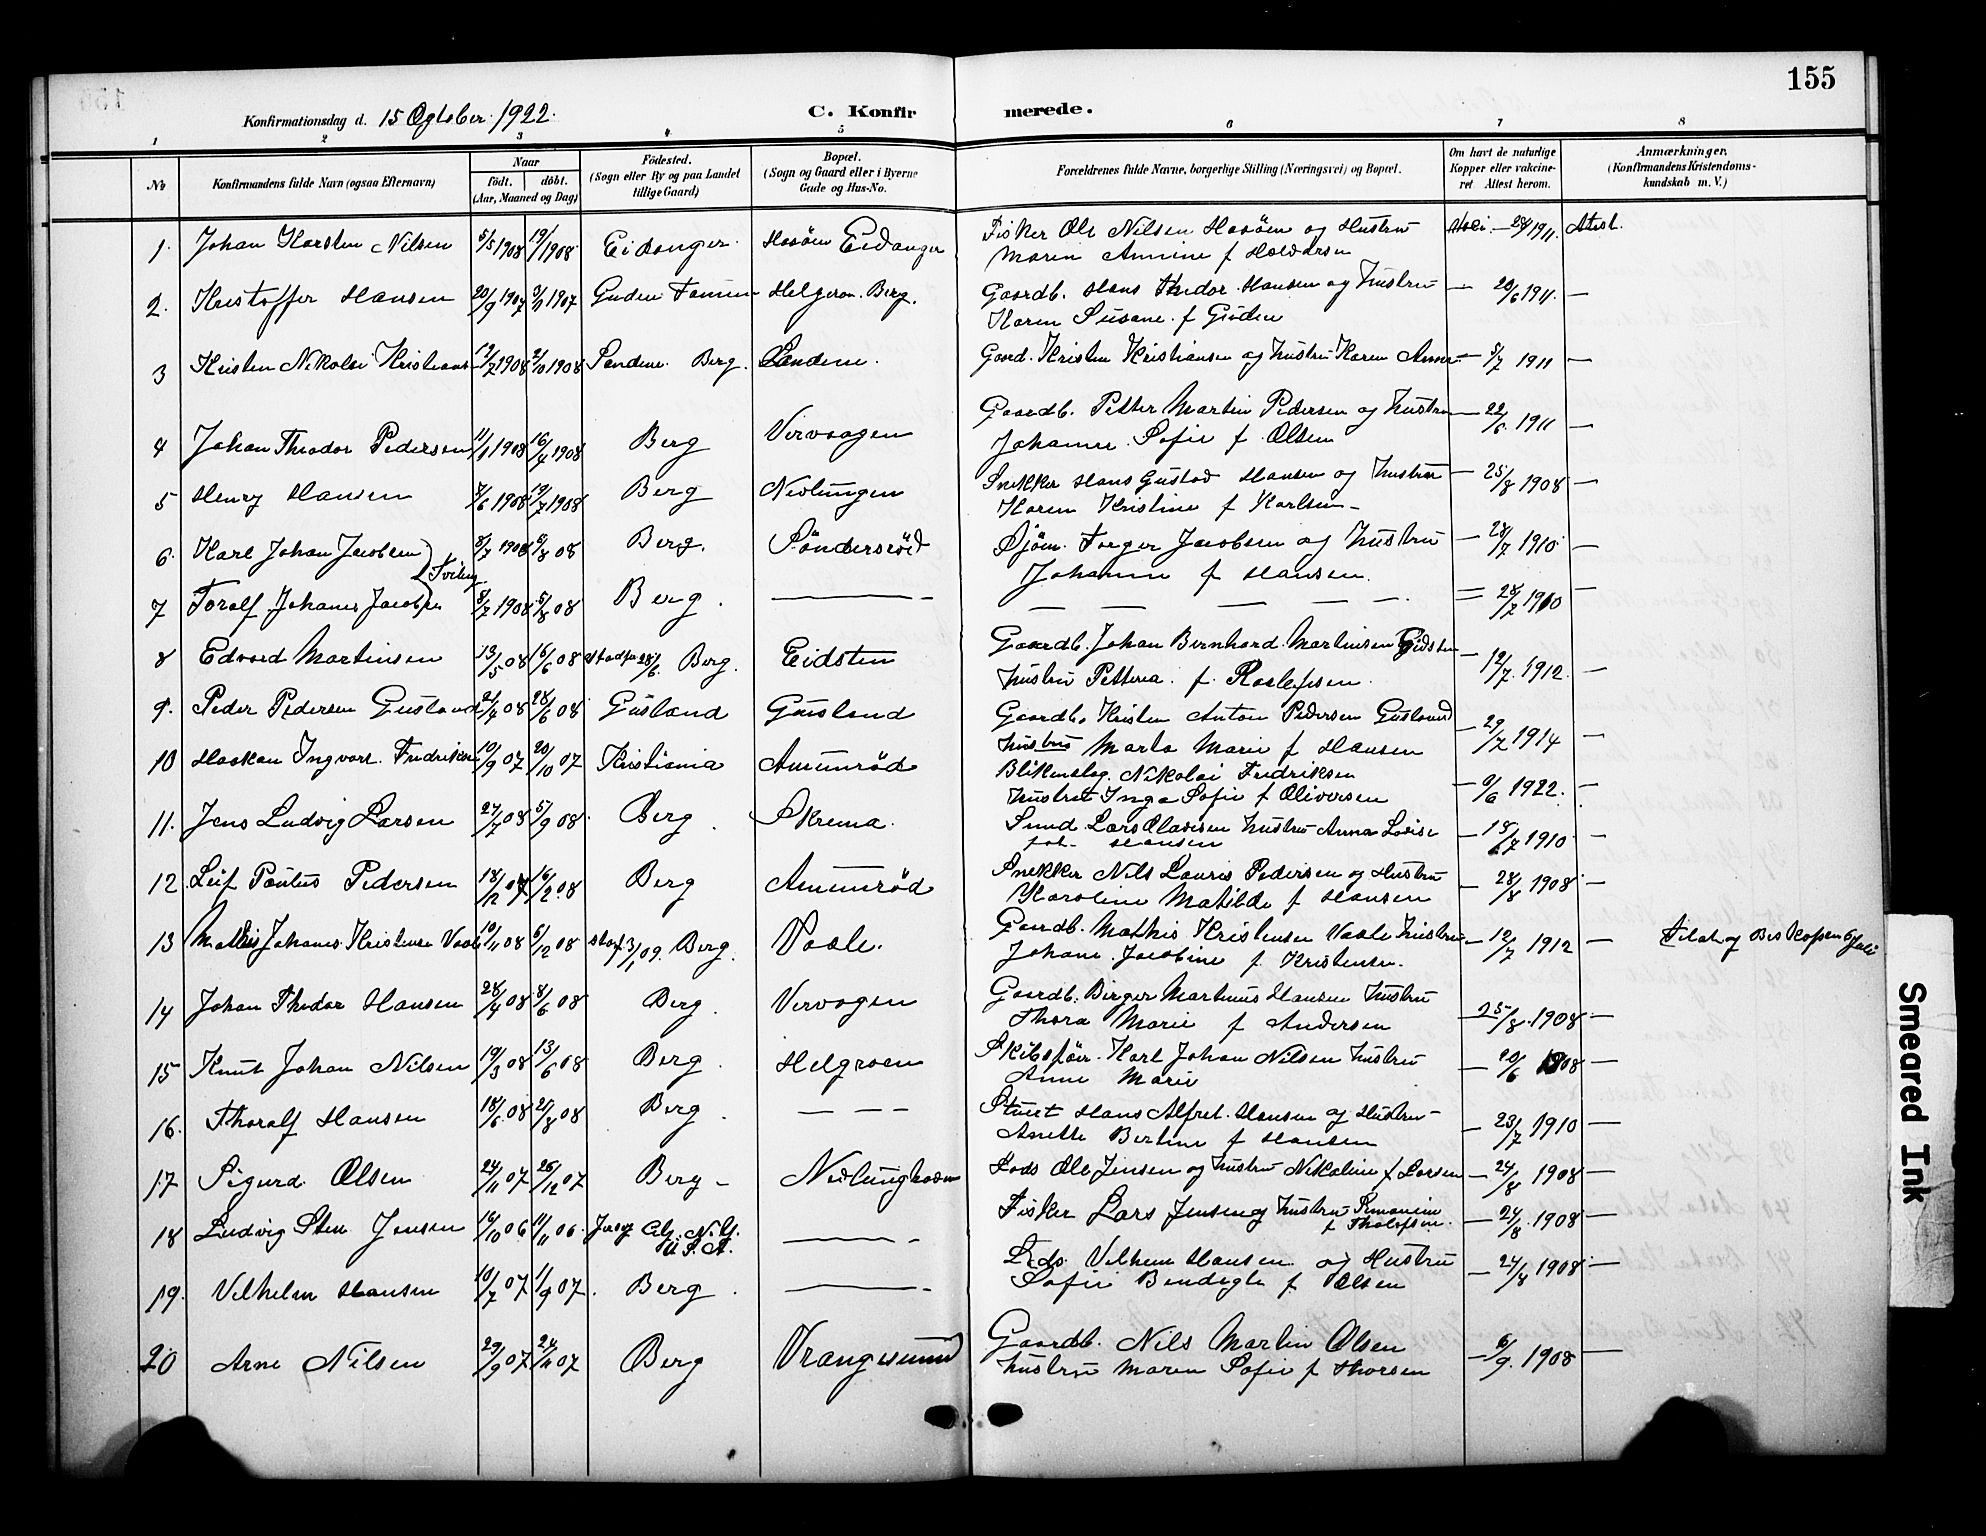 155
Konfirmationsdag d. 15 Ogtober 1922.
C. Konfirmerede.
1 2 3 4 5 6 7 8
No
Konfirmandens fulde Navn (ogsaa Efternavn)
Naar
födt. döbt.
(Aar, Maaned og Dag)
Födested.
(Sogn eller By og paa Landet
tillige Gaard)
Bopæl.
(Sogn og Gaard eller i Byerne
Gade og Hus-No.
Forældrenes fulde Navne, borgerlige Stilling (Næringsvei) og Bopæl.
Om havt de naturlige
Kopper eller vakcine-
ret Attest herom.
Anmærkninger.
(Konfirmandens Kristendoms-
kundskab m. V.)
1. Johan Karsten Nilsen 5/5 1908 Eidanger Eidanger Fisker Ole Nilsen og Hustru 1911. Attest.
Maren Annine f
2. Kristoffer Hansen 20/9 1907 1907 Guden Helgeroa. Berg. Gaardb. Hans Hansen og Hustru — 20/6 1911. —
Karen Susane f Guden
3 Kristen Nikolai Kristians 12/7 1908 1908 Berg. Gaard. Kristen Kristiansen og Hustru Karen Anna — 1911 —
4 Johan Theodor Pedersen 11/1 1908 16/4 1908 Berg Vervaagen Gaardb. Petter Martin Pedersen og Hustru — 22/6 1911 —
Johanne Sofie f. Olsen
5 Henry Hansen 1908 19/7 1908 Berg Nevlungen Snekker Hans Gustav Hansen og Hustru — 25/8 1908 —
Karen Kristine f Karlsen —
6. Karl Johan Jacobsen 8/7 1908 08 Berg. Söndersröd Sjöm. Torger Jacobsen og Hustru — 28/7 1910 —
Tviling
Johanne f Hansen.
7 Toralf Johanes Jacobsen 8/7 1908 08 Berg. — — — — — — = 28/7 1910 —
8 Edvard Martinsen 13/5 08 16/6 08 Berg. Eidsten Gaardb. Johan Bernhard Martinsen Eidsten — 12/7. 1912. —
Hustru Petterea f. Roalefsen.
9. Peder Pedersen Gusland 08 28/6 08 Gusland Gusland Gaardb. Kristen Anton Pedersen Gusland — 29/7 1914 —
Hustru Marta Marie f Hansen
10 Haakon Ingvart Fredriksen 10/9 07 20/10 07 Kristiania Amunröd Blikenslag. Nikolai Fredriksen — 9/6 1922. —
Hustru Inga Sofie f Oliversen
11. Jens Ludvig Larsen 27/7 08 08 Berg. Skrema. Smed Lars Hustru Anna Lovise — 1910 —
f. Hansen
12. Leif Pontus Pedersen 18/12 07 16/2 08 Berg Amunröd Snekker Nils Lauris Pedersen og Hustru — 28/8 1908 —
Karoline Matilde f Hansen
13 Johanes Kristensen Vaale 10/11 08 6/12 08 3/1 09. Berg. Vaale. Gaardb. Mathis Kristensen Vaale Hustru — 12/7 1912 — Tilat af Biskopen
Johane Jacobine f. Kristensen.
14 Johan Thedor Hansen 28/4 08 8/6 08 Berg. Vervagen Gaardb. Birger Martinus Hansen Hustru — 25/8. 1908 —
Thora Marie f Andersen
15 Knut Johan Nilsen 19/3 08 13/6 08 Berg. Helgroen Karl Johan Nilsen Hustru — 20/6 1908 —
Anne Marie
16. Thoralf Hansen 18/6. 08 08 Berg. — — — Stuert Hans Alfret Hansen og Hustru — — 23/7 1910 —
Anette Bertine f Hansen
17 Sigurd Olsen 24/11 07 26/12 07 Berg — Nevlunghavn Lods Ole Jensen og Hustru Nikoline f Larsen — 24/8 1908 —
18 Ludvig Sten Jensen 16/10 06 11/11 06. Jersey City N.Y. — Fisker Lars Jensen og Hustru — 24/8. 1908 —
U.S.A.
19. Vilhelm Hansen 10/7 07 11/9 07. Berg. — Lods Vilhem Hansen og Hustru — 24/8 1908 —
Sofie Bendigte f Olsen
20 Arne Nilsen 29/9 07 24/11 07 Berg Vrangesund Gaardb. Nils Martin Olsen — 6/9. 1908 —
Hustru Maren Sofie f Thorsen
Smeared Ink